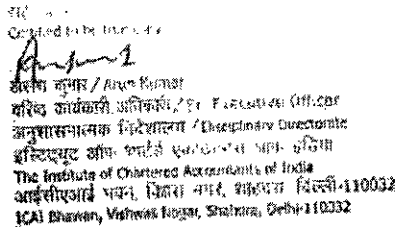 Certified to be true copy
अरुण कुमार / Arun Kumar
वरिष्ठ कार्यकारी अधिकारी / Sr. Executive Officer
अनुशासनात्मक निदेशालय / Disciplinary Directorate
इंस्टिट्यूट ऑफ चार्टर्ड एकाउंटेंट्स ऑफ इंडिया
The Institute of Chartered Accountants of India
आईसीएआई भवन, विश्वास नगर, शाहदरा दिल्ली-110032
ICAI Bhawan, Vishwas Nagar, Shahdra, Delhi-110032